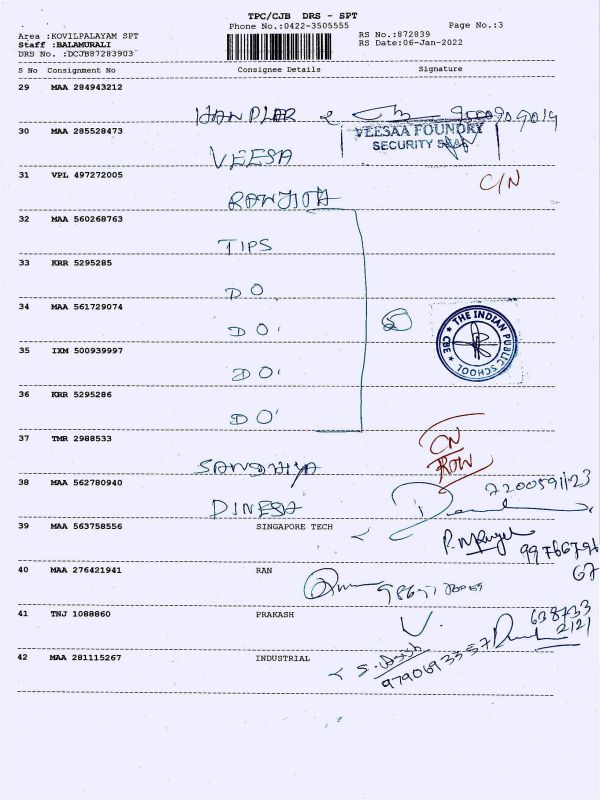 TPC/CJB DRS - SPT
Phone No.:0422-3505555
Page No.:3
Area :KOVILPALAYAM SPT
RS No.:872839
Staff :BALAMURALI
RS Date:06-Jan-2022
DRS No. :DCJB87283903
S No Consignment No Consignee Details Signature
29 MAA 284943212
30 MAA 285528473
VEESAA FOUNDRY
SECURITY
VEESA
31 VPL 497272005
C/N
RANJITA
32 MAA 560268763
TIPS
33 KRR 5295285
DO
34 MAA 561729074
DO'
5
THE INDIAN PUBLIC SCHOOL
CBE
35 IXM 500939997
DO'
36 KRR 5295286
DO'
37 TMR 2988533
CN
SANDHIYA
38 MAA 562780940
7200591123
DINESA
39 MAA 563758556 SINGAPORE TECH
99766796
67
40 MAA 276421941 RAN
41 TNJ 1088860 PRAKASH
638733
2121
42 MAA 281115267 INDUSTRIAL
9790693357